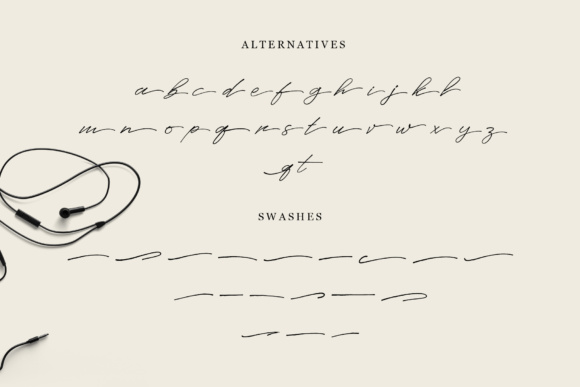 ALTERNATIVES
a b c d e f g h i j k l
m n o p q r s t u v w x y z
SWASHES